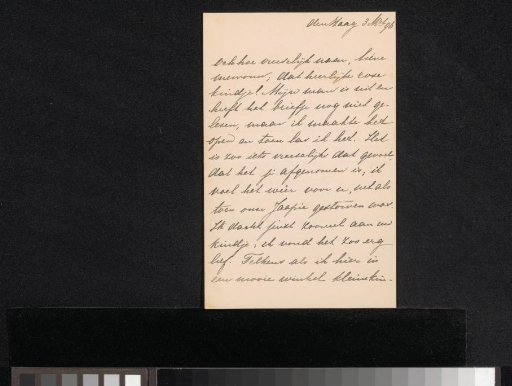 den Haag 3 Mrt 96
Och hoe vreeselijk naar, lieve
mevrouw, dat heerlijke
kindje! Mijn man is uit en
heeft het briefje nog niet ge-
lezen, maar ik maakte het
open en toen las ik het. Het
is zoo iets vreeselijks dat gevoel
dat het je afgenomen is, ik
voel het wéér voor u, net als
toen onze Jaapie gestorven was.
Ik dacht juist zooveel aan uw
kindje, ik vond het zoo erg
lief. Telkens als ik hier in
een mooie winkel kleine kin-